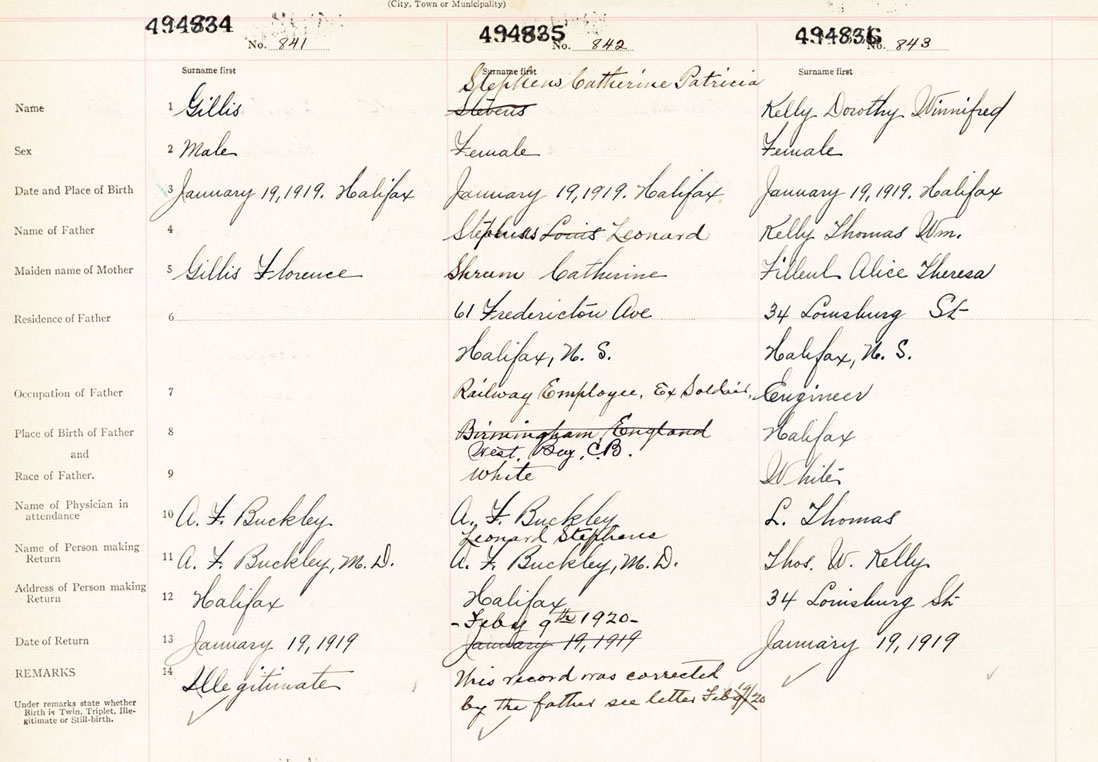 (City, Town or Municipality)
494834 494835 494836
No. 841 No. 842 No. 843
Surname first Surname first Surname first
Stephens Catherine Patricia
Name 1 Gillis Stevens Kelly Dorothy Winnifred
Sex 2 Male Female Female
Date and Place of Birth 3 January 19, 1919. Halifax January 19, 1919. Halifax January 19, 1919. Halifax
Name of Father 4 Stephens Louis Leonard Kelly Thomas Wm.
Maiden name of Mother 5 Gillis Florence Shrum Catherine Filleul Alice Theresa
Residence of Father 6 61 Fredericton Ave 34 Louisburg St
Halifax, N. S. Halifax, N. S.
Occupation of Father 7 Railway Employee, Ex Soldier, Engineer
Place of Birth of Father 8 Birmingham, England Halifax
and West, Bay, C.B.
Race of Father. 9 White White
Name of Physician in
attendance 10 A. F. Buckley A. F. Buckley L. Thomas
Leonard Stephens
Name of Person making
Return 11 A. F. Buckley, M. D. A. F. Buckley, M. D. Thos. W. Kelly
Address of Person making
Return 12 Halifax Halifax 34 Louisburg St
- Feby 9th 1920 -
Date of Return 13 January 19, 1919 January 19, 1919 January 19, 1919
REMARKS 14 Illegitimate This record was corrected
by the father see letter Feb 9/20
Under remarks state whether
Birth is Twin, Triplet, Ille-
gitimate or Still-birth.